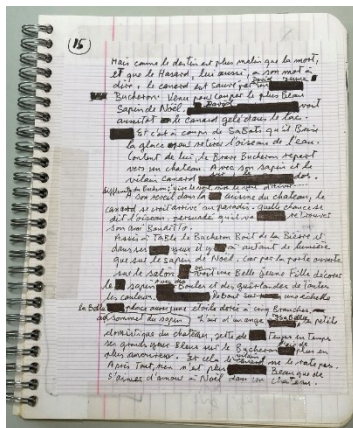 15
Mais comme le destin est plus malin que la mort,
et que le Hasard, lui aussi, a son mot à
dire, le canard est sauvé par un David jeune
Bucheron. Venu pour couper le plus Beau
Sapin de Noël. David voit
aussitôt le canard gelé dans le lac.
Et c'est à coups de Sabots qu'il Brise
la glace pour retirer l'oiseau de l'eau.
Content de lui, le Brave Bucheron repart
vers un chateau. Avec son sapin et le
vilain canard dos.
A son réveil dans la cuisine du chateau, le
canard se croit arrivé au paradis. quelle chance se
dit l'oiseau. persuadé qu'il va retrouver
son ami Banditto.
Assis à Table le Bucheron Boit de la Bière et
dans ses yeux il y a autant de lumière
que sur le sapin de Noël. Car par la porte ouverte
sur le salon voit une Belle Jeune Fille décorer
le sapin avec des Boules et des guirlandes de toutes
les couleurs. Debout sur une échelle
la Belle place aussi une étoile dorée à cinq Branches,
au sommet du sapin. Isabella, la petite
du chateau, jette de Temps en Temps
ses grands yeux Bleus sur le Bucheron plus en
plus amoureux. Et cela ne le rate pas.
Après Tout, rien n'est plus Beau que de
s'aimer d'amour à Noël dans un chateau.